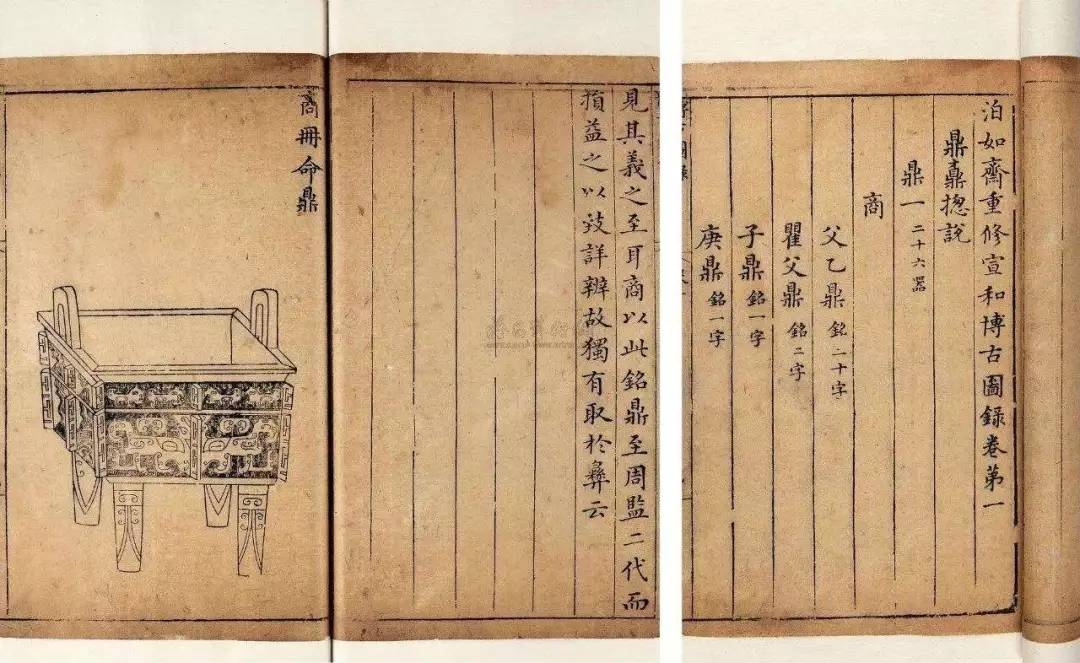 泊如齋重修宣和博古圖錄卷第一
鼎鼒揔說
鼎一二十六器
商
父乙鼎銘二十字
瞿父鼎銘二字
子鼎銘一字
庚鼎銘一字
見其義之至耳商以此銘鼎至周監二代而
損益之以致詳辨故獨有取於彞云
商冊命鼎